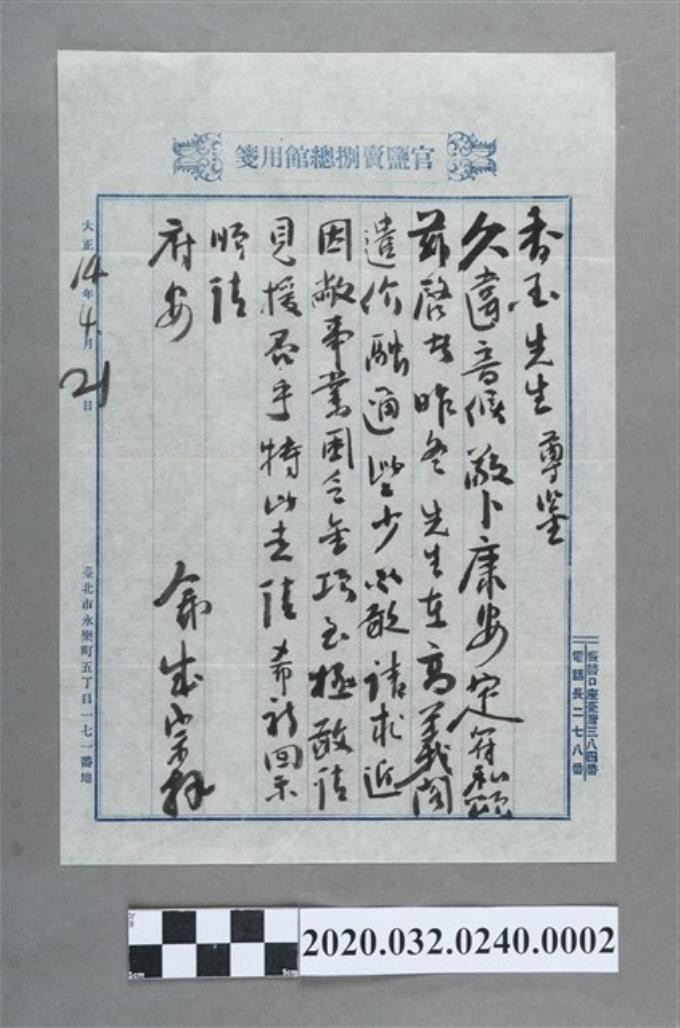 官鹽賣捌總館用箋
香玉先生 尊鑒
久違音候敬卜康安定符私頌
茲啓者昨冬先生在高義閣
遣价融通些少敬請
因敝事業困乏金項至極敬請
見援否乎特此走請希祈回示
順請
府安
大正14年4月21日
臺北市永樂町五丁目一七一番地
振替口座臺灣三八四番
電話長二七八番
2020.032.0240.0002
2cm
1cm
5cm